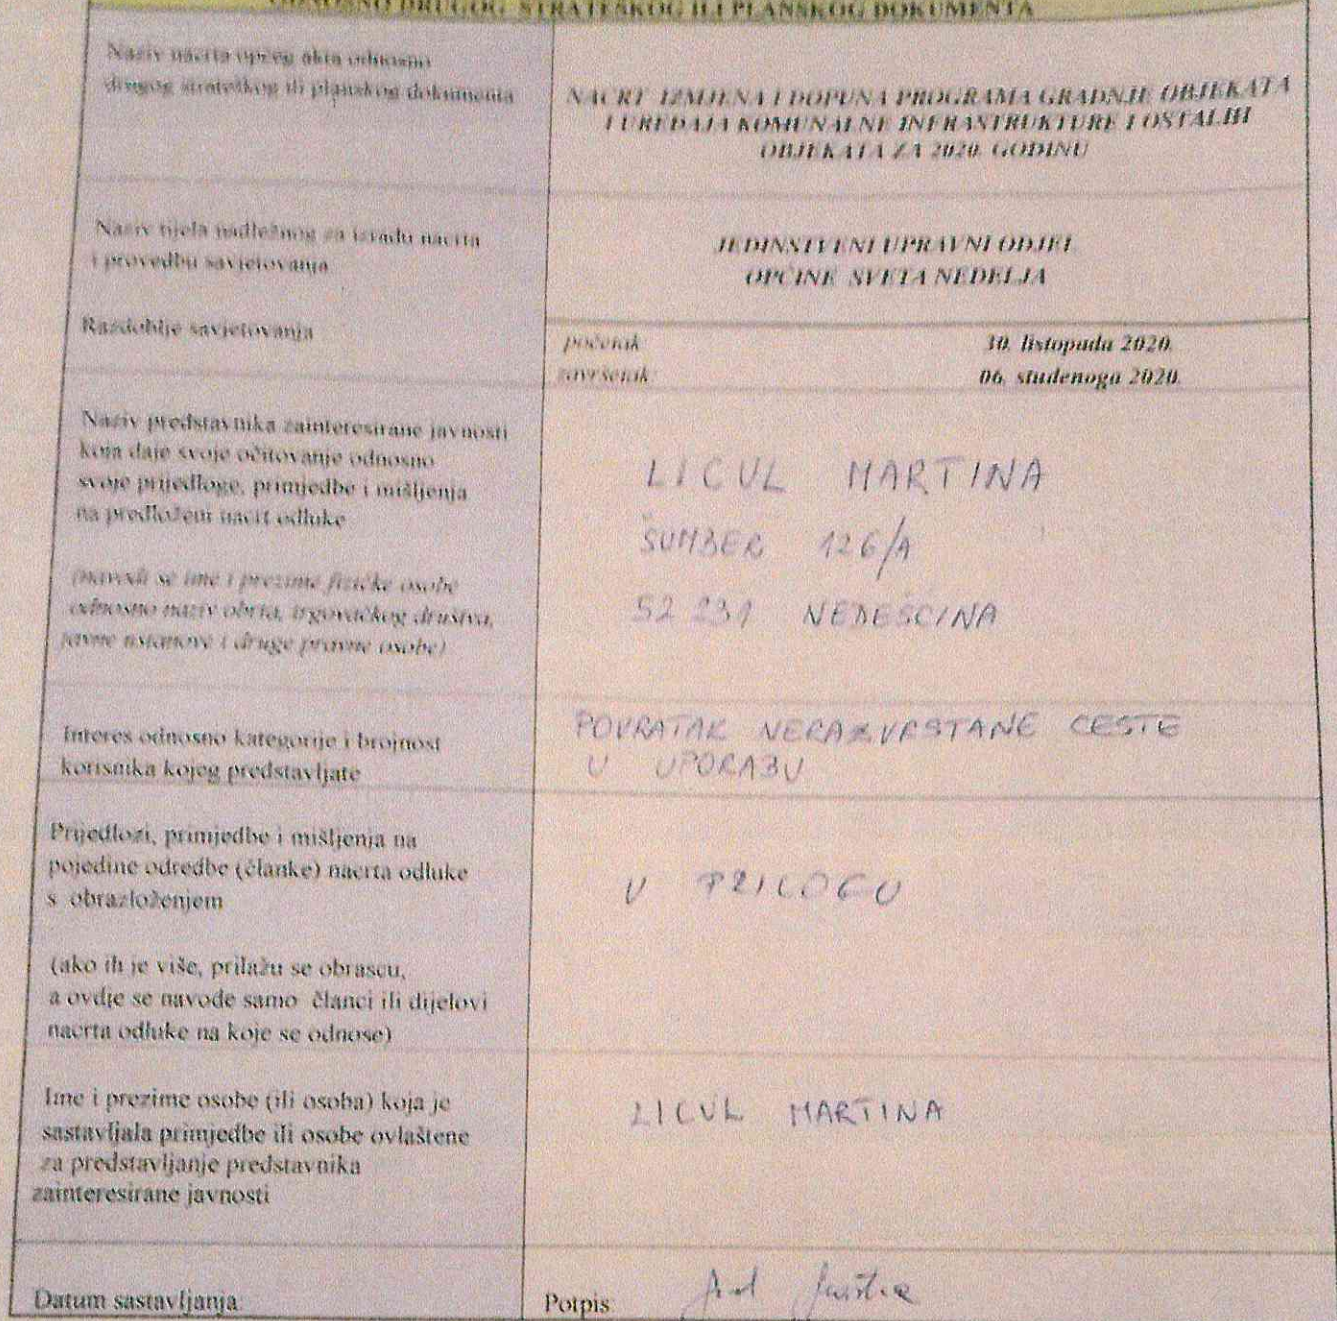 ODNOSNO DRUGOG STRATEŠKOG ILI PLANSKOG DOKUMENTA
Naziv nacrta općeg akta odnosno
drugog strateškog ili planskog dokumenta
NACRT IZMJENA I DOPUNA PROGRAMA GRADNJE OBJEKATA
I UREĐAJA KOMUNALNE INFRASTRUKTURE I OSTALIH
OBJEKATA ZA 2020. GODINU
Naziv tijela nadležnog za izradu nacrta
i provedbu savjetovanja
JEDINSTVENI UPRAVNI ODJEL
OPĆINE SVETA NEDELJA
Razdoblje savjetovanja
početak 30. listopada 2020.
završetak 06. studenoga 2020.
Naziv predstavnika zainteresirane javnosti
koja daje svoje očitovanje odnosno
svoje prijedloge, primjedbe i mišljenja
na predloženi nacrt odluke
(navodi se ime i prezime fizičke osobe
odnosno naziv obrta, trgovačkog društva,
javne ustanove i druge pravne osobe)
LICUL MARTINA
ŠUMBER 126/A
52 231 NEDEŠĆINA
Interes odnosno kategorije i brojnost
korisnika kojeg predstavljate
POVRATAK NERAZVRSTANE CESTE
U UPORABU
Prijedlozi, primjedbe i mišljenja na
pojedine odredbe (članke) nacrta odluke
s obrazloženjem
(ako ih je više, prilažu se obrascu,
a ovdje se navode samo članci ili dijelovi
nacrta odluke na koje se odnose)
U PRILOGU
Ime i prezime osobe (ili osoba) koja je
sastavljala primjedbe ili osobe ovlaštene
za predstavljanje predstavnika
zainteresirane javnosti
LICUL MARTINA
Datum sastavljanja:
Potpis: